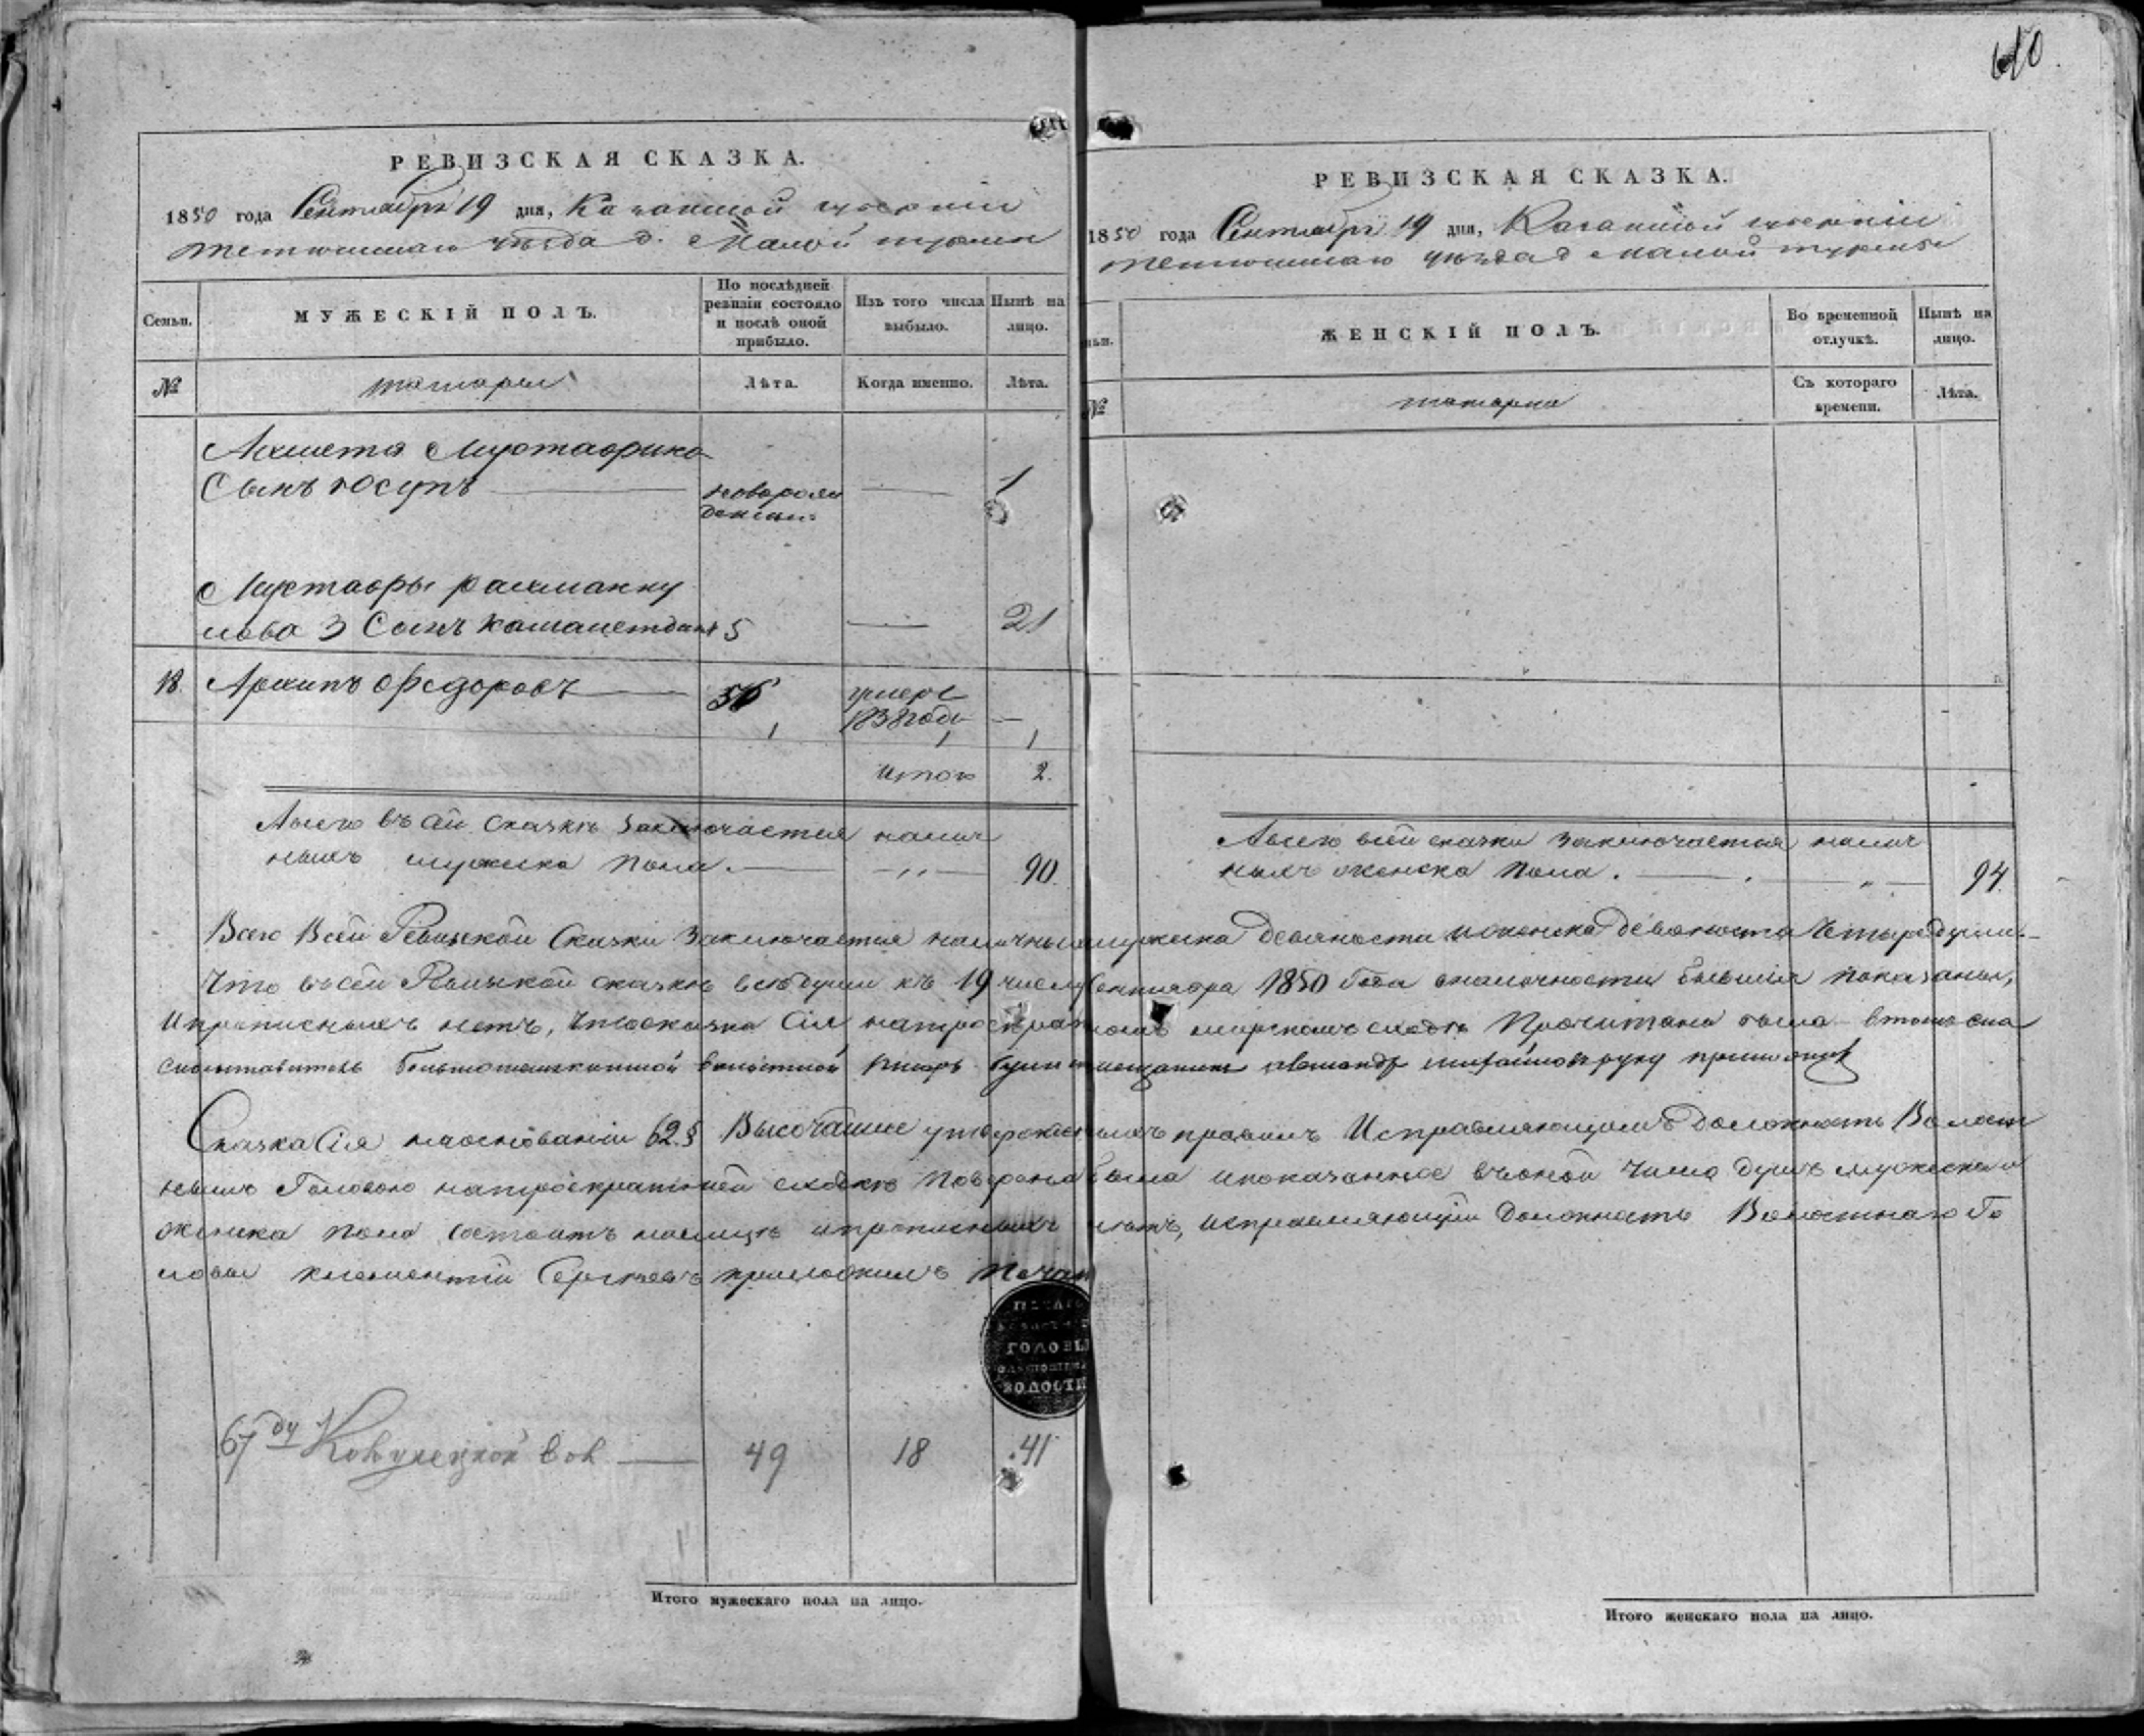 610.
РЕВИЗСКАЯ СКАЗКА.
1850 года Сентября 19 дня, Казанской губернии
Тетюшскаго уѣзда д. Малой
Семьи.
МУЖЕСКІЙ ПОЛЪ.
По послѣдней ревизіи состояло и послѣ оной прибыло.
Изъ того числа выбыло.
Нынѣ на лицо.
№
татары
Лѣта.
Когда именно.
Лѣта.
Ахмета Мустафина
Сынъ Юсупъ новорож 1
денный
Мустафы рахманку
лова 3 Сынъ 5 21
18. Архипъ Федоровъ 56 умеръ
1838 году
1 1 1
Итого 2.
А всего въ сей сказкѣ заключается налич
ныхъ мужеска пола. 90.
РЕВИЗСКАЯ СКАЗКА.
1850 года Сентября 19 дня, Казанской губерніи
Тетюшскаго уѣзда д Малой
ЖЕНСКІЙ ПОЛЪ.
Во временной отлучкѣ.
Нынѣ на лицо.
№
татарки
Съ котораго времени.
Лѣта.
А всего всей сказки заключается налич
ныхъ женска пола. 94.
Всего Всей Ревизской Сказки заключается наличныхъ мужеска девяносто и женска девяносто Четыре души.
Что въ сей Ревизкой сказкѣ все души къ 19 числу Сентября 1850 года въ наличности бывшія показаны,
и прописныхъ нетъ, что сказка Сія на мирскомъ сходѣ Прочитана была в томъ
волостной писарь руку приложилъ
Сказка Сія на основаніи 62 § Высочайше утвержденныхъ правилъ Исправляющимъ Должность Волост
нымъ Головою на сходкѣ Поверена была и показанное въ оной Число душъ мужеска и
женска пола состоитъ на лицо и прописныхъ нетъ, исправляющій Должность Волостнаго Го
ловы Клементій Сергѣевъ приложилъ Печать
ГОЛОВЫ
ВОЛОСТИ
67 ду вол 49 18 41
Итого мужескаго пола на лицо.
Итого женскаго пола на лицо.